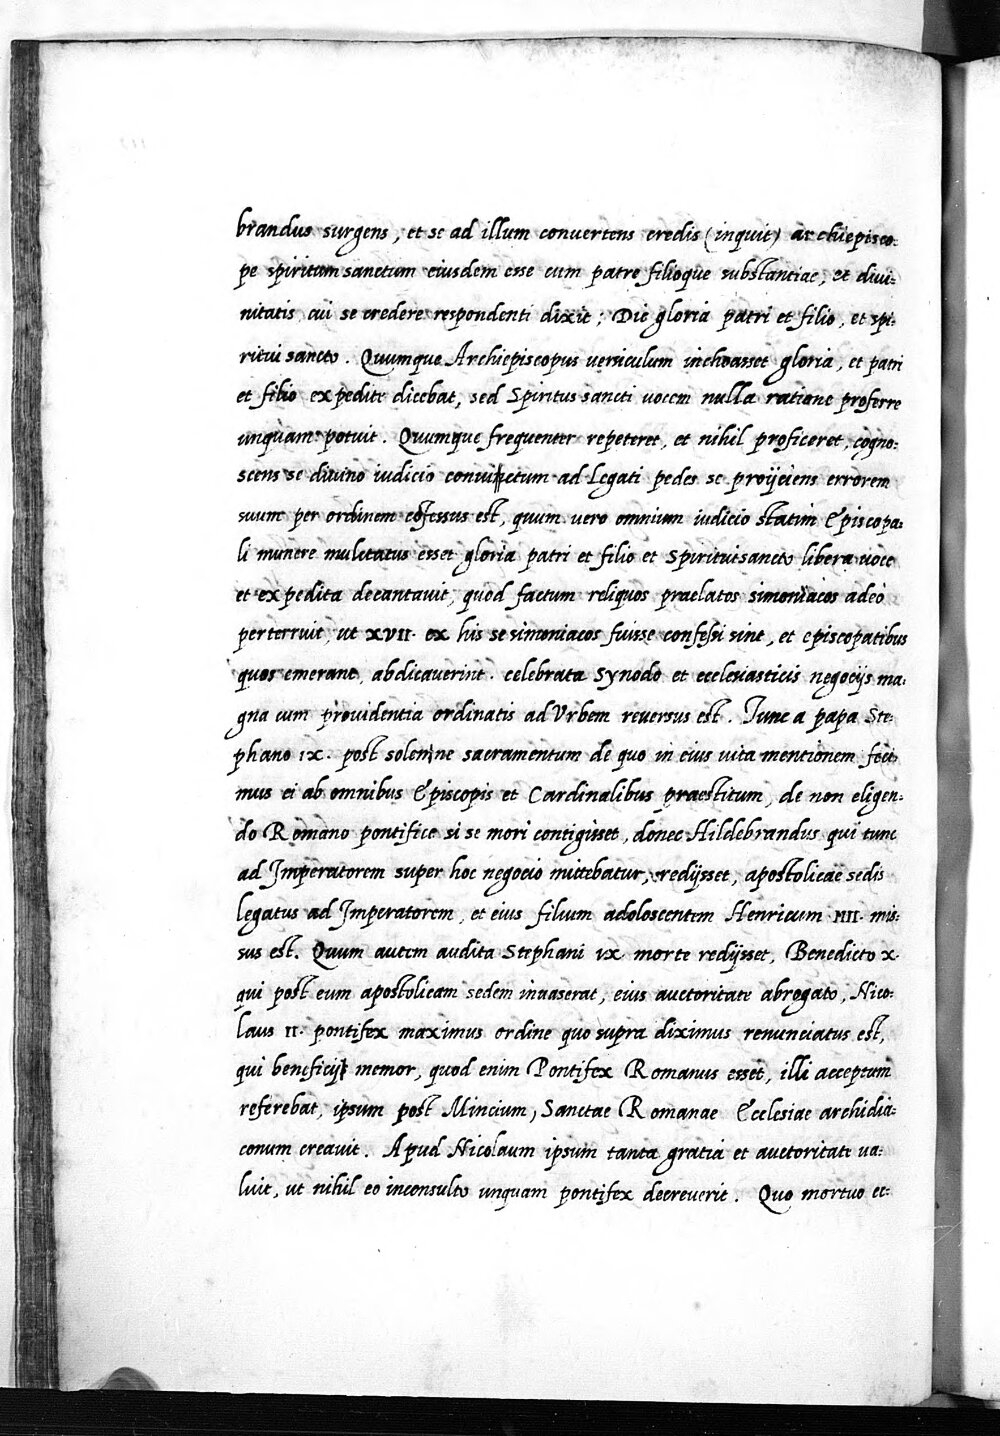 brandus surgens, et se ad illum convertens credis (inquit) archiepisco:
pe spiritum sanctum eiusdem esse cum patre filioque substantiae, et divi:
nitatis, cui se credere respondenti dixit; Dic gloria patri et filio, et spi:
ritui sancto. Quumque Archiepiscopus versiculum inchoasset gloria, et patri
et filio expedite dicebat, sed Spiritus sancti vocem nulla ratione proferre
unquam potuit. Quumque frequenter repeteret, et nihil proficeret, cogno:
scens se divino iudicio convictum ad Legati pedes se proijciens errorem
suum per ordinem cõfessus est, quum vero omnium iudicio statim Episcopa:
li munere mulctatus esset gloria patri et filio et Spirituisancto libera voce
et expedita decantavit, quod factum reliquos praelatos simoniacos adeò
perterruit, ut XVII. ex his se simoniacos fuisse confessi sint, et episcopatibus
quos emerant, abdicaverint. celebrata Synodo et ecclesiasticis negocijs ma:
gna cum providentia ordinatis ad Urbem reversus est. Tunc a papa Ste:
phano IX. post solenne sacramentum de quo in eius vita mentionem feci
mus ei ab omnibus Episcopis et Cardinalibus praestitum, de non eligen:
do Romano pontifice si se mori contigisset, donec Hildebrandus qui tunc
ad Imperatorem super hoc negocio mittebatur, redijsset, apostolicae sedis
legatus ad Imperatorem, et eius filium adoloscentem Henricum IIII. mis:
sus est. Quum autem audita Stephani IX. morte redijsset, Benedicto X.
qui post eum apostolicam sedem invaserat, eius auctoritate abrogato, Nico:
laus II. pontifex maximus ordine quo supra diximus renunciatus est,
qui beneficij memor, quod enim Pontifex Romanus esset, illi acceptum
referebat, ipsum post Mincium, Sanctae Romanae Ecclesiae archidia:
conum creavit. Apud Nicolaum ipsum tanta gratia et auctoritate va:
luit, ut nihil eo inconsulto unquam pontifex decreverit. Quo mortuo et: